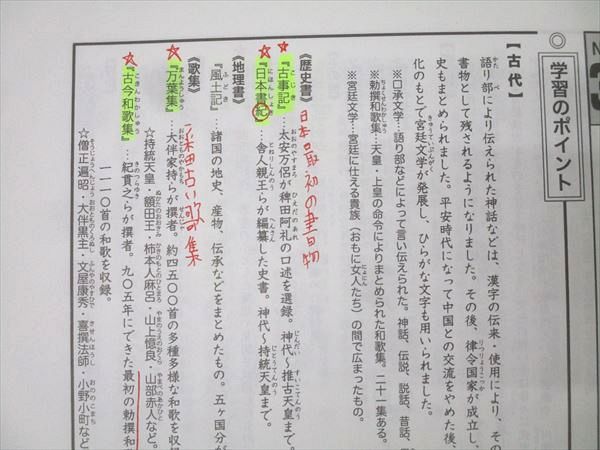 ◎学習のポイント
【古代】
語り部により伝えられた神話などは、漢字の伝来・使用により、その
書物として残されるようになりました。その後、律令国家が成立し、
史もまとめられました。平安時代になって中国との交流をやめた後、
化のもとで宮廷文学が発展し、ひらがな文字も用いられました。
※口承文学…語り部などによって言い伝えられた。神話、伝説、説話、昔話、
※勅撰和歌集…天皇・上皇の命令によりまとめられた和歌集。二十一集ある。
※宮廷文学…宮廷に仕える貴族(おもに女人たち)の間で広まったもの。
日本最初の書物
《歴史書》
☆『古事記』…太安万侶が稗田阿礼の口述を選録。神代〜推古天皇まで。
☆『日本書紀』…舎人親王らが編纂した史書。神代〜持統天皇まで。
《地理書》
『風土記』…諸国の地史、産物、伝承などをまとめたもの。五ヶ国分が
《歌集》
古い歌集
☆『万葉集』…大伴家持らが撰者。約四五〇〇首の多種多様な和歌を収録
☆持統天皇・額田王・柿本人麻呂・山上憶良・山部赤人など。
☆『古今和歌集』…紀貫之らが撰者。九〇五年にできた最初の勅撰和
一一一〇首の和歌を収録。
☆僧正遍昭・大伴黒主・文屋康秀・喜撰法師・小野小町など